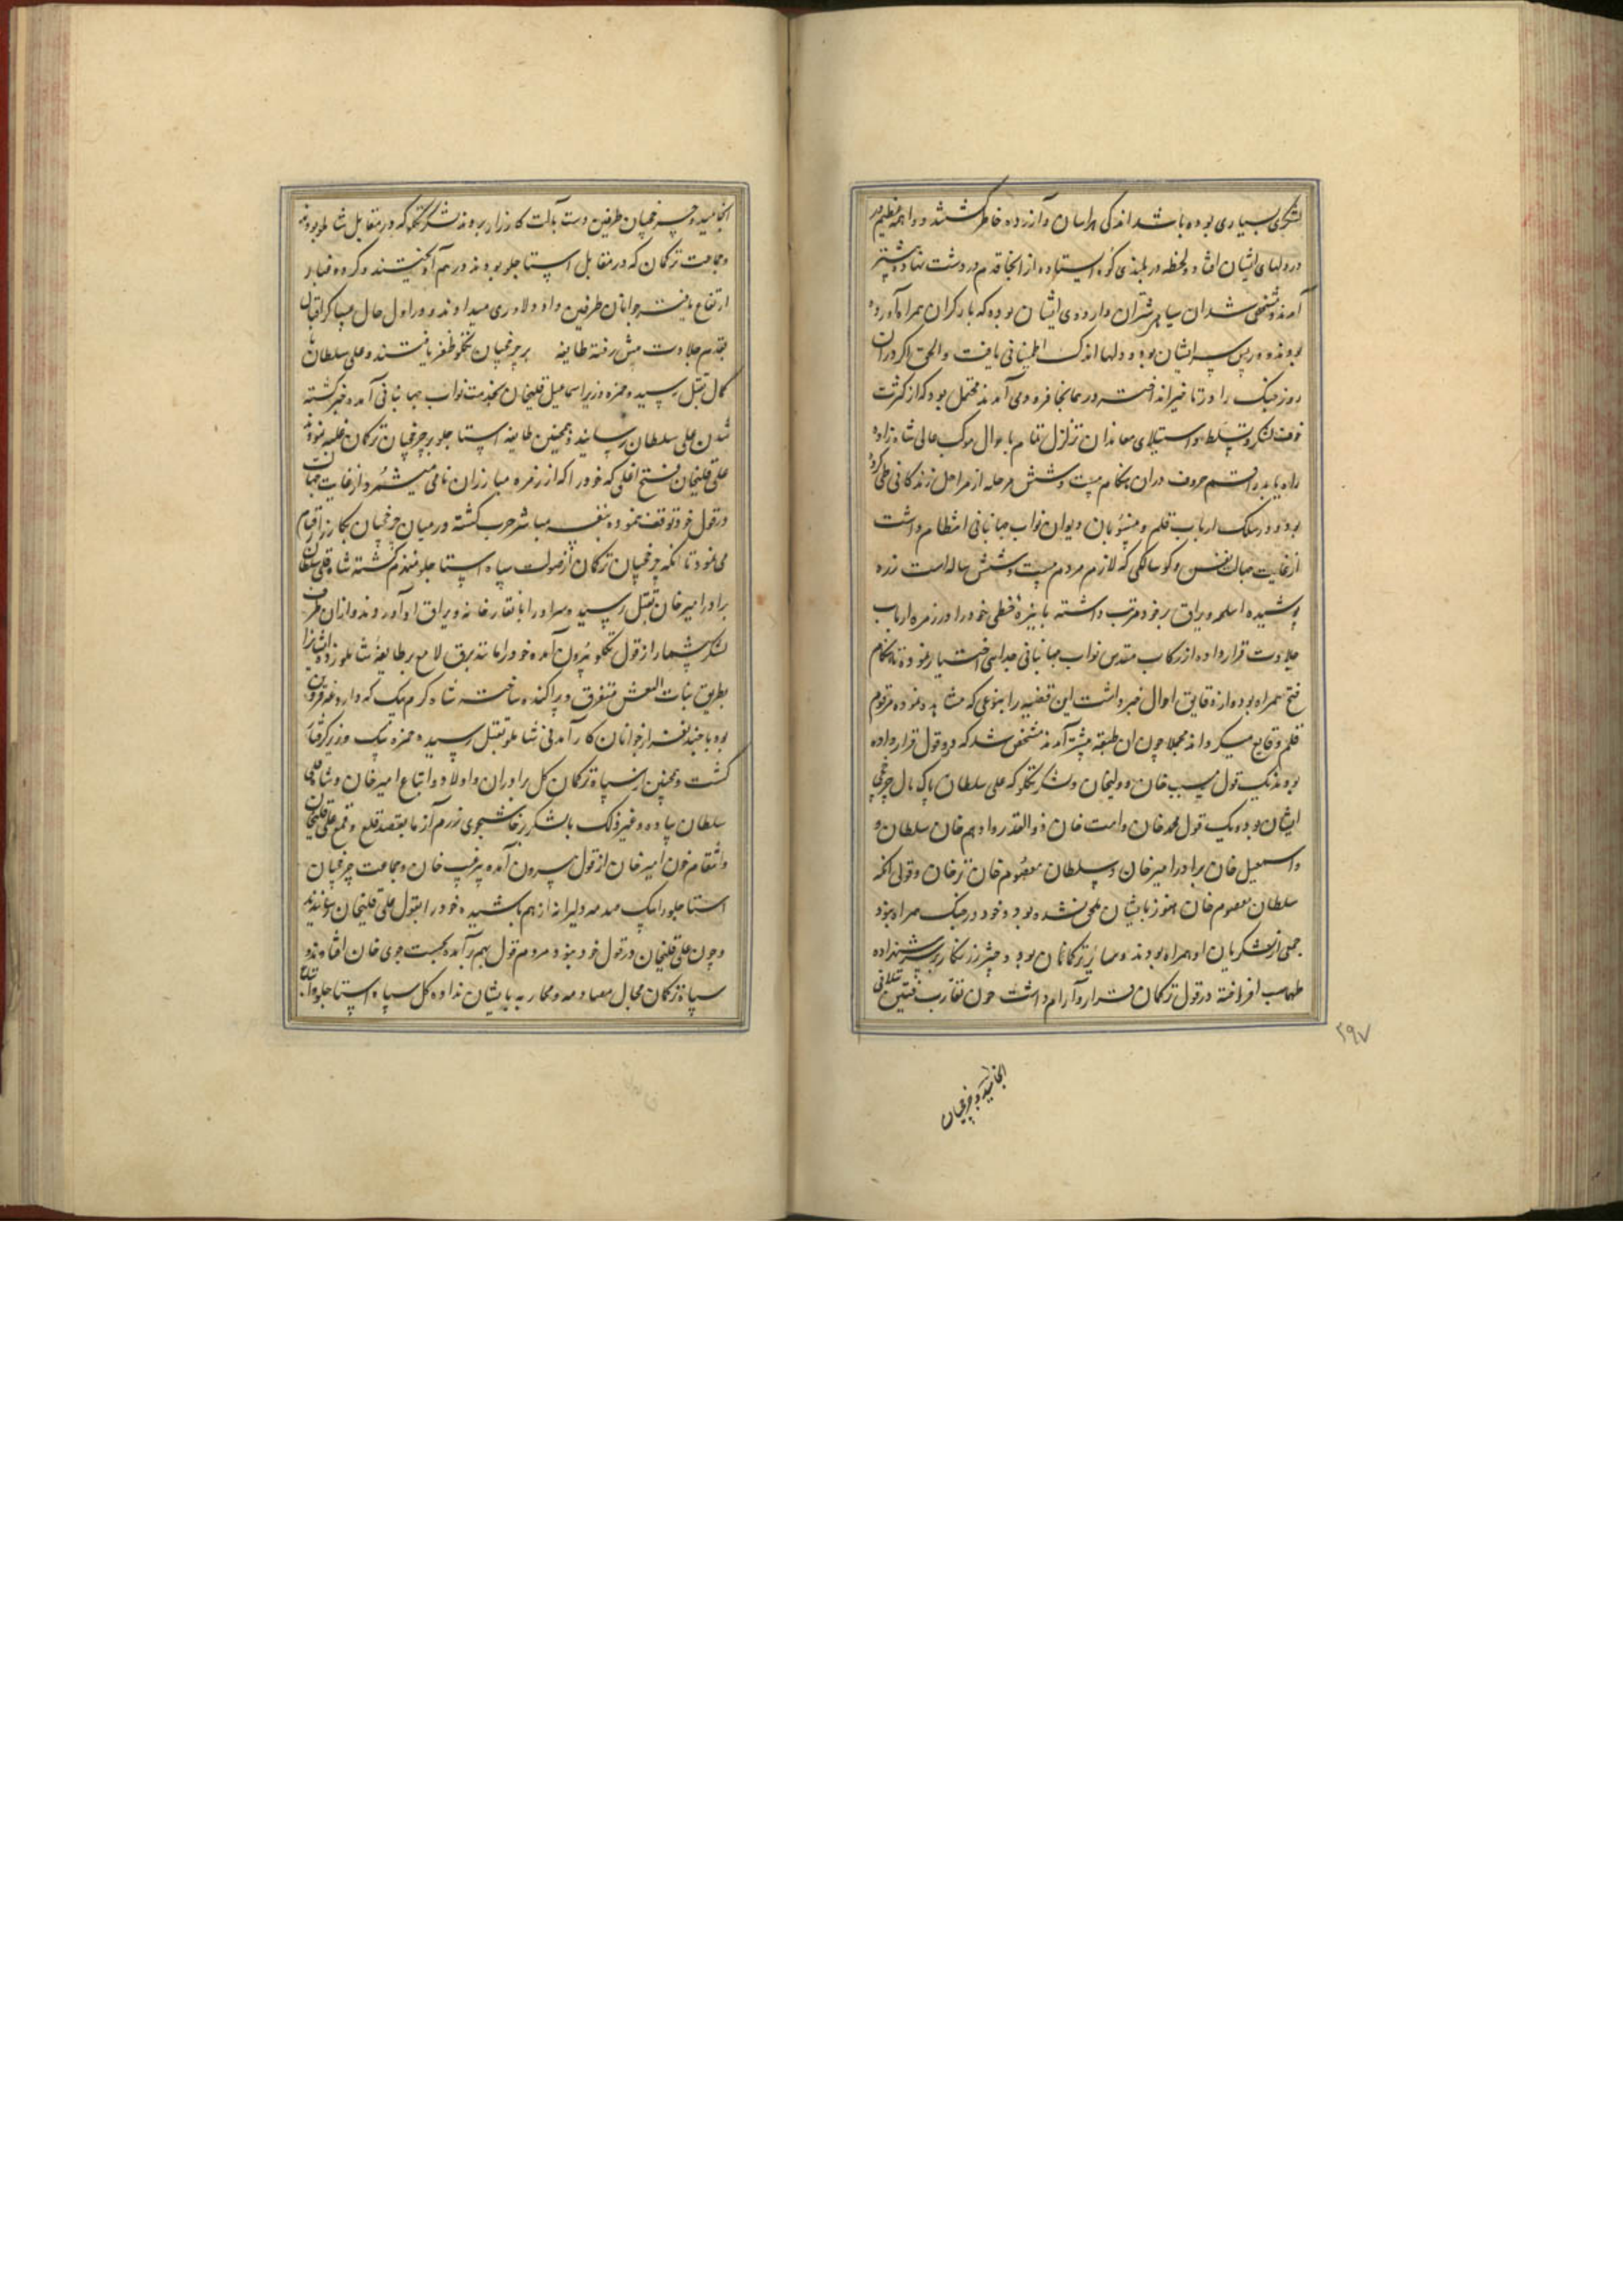 لشکری بسیاری بوده باشد اندکی هراسان و آزرده خاطر گشتند و واهمه عظیم در
در دلهای ایشان افتاد و لحظه در بلندی کوه ایستاده از انجا قدم در دشت نهاده پیشتر
آمدند و مشخص شد ان سیاهی شتران و اردوی ایشان بوده که بار کران همراه آورده
بودند و در پس سر ایشان بود و دلها اندک اطمینانی یافت و الحق اگر دران
روز جنک را در تاخیر انداخته در همانجا فرود می آمدند محتمل بود که از کثرت
خوف لشکر و تسلط و استیلای معاندان تزلزل تمام باحوال موکب عالی شاهزاده
راه یابد راقم حروف دران هنکام بیست و شش مرحله از مراحل زندکانی طی کرده
بود و در سلک ارباب قلم و منسوبان دیوان نواب جهانبانی انتظام داشت
از غایت جهالت نفس و کوسالکی که لازم مردم بیست و شش ساله است زره
پوشیده اسلحه و یراق بر خود مرتب داشته با نیزه خطی خود را در زمره ارباب
جلادت قرار داده از رکاب مقدس نواب جهانبانی جدایی اختیار ننموده تا هنکام
فتح همراه بوده از دقایق احوال خبر داشت این قضیه را بنوعی که مشاهده نموده مرقوم
قلم وقایع میکرداند مجملا چون ان طبقه پیشتر آمدند مشخص شد که دو قول قرار داده
بودند یک قول مسیب خان و ولیخان و لشکر تکلو که علی سلطان پاک مال چرخچی
ایشان بود و یک قول محمد خان و امت خان ذوالقدر و ادهم خان سلطان و
و اسمعیل خان برادر امیر خان و سلطان معصوم خان ترخان و قولی انکه
سلطان معصوم خان هنوز بایشان ملحق نشده بود و خود در جنک همراه نبود
جمعی از لشکریان او همراه بودند و سایر ترکمانان بود و چتر زرنکار بر سر شهزاده
طهماسب افراخته در قول ترکمان قرار و آرام داشت چون تقارب فئتین بتلاقی
۲۹۷
انجامید و چرخچیان
انجامید و چرخچیان طرفین دست بآلت کارزار بردند لشکر تکلو که در مقابل شاملو بودند
و جماعت ترکمان که در مقابل استاجلو بودند در هم آویختند و کرد و غبار
ارتفاع یافته جوانان طرفین داد دلاوری میدادند و در اول حال عساکر اقبال
بقدم جلادت پیش رفته طایفه بر چرخچیان تکلو ظفر یافتند و علی سلطان پاک
مال بقتل رسید و حمزه وزیر اسماعیل قلیخان بخدمت نواب جهانبانی آمده خبر کشته
شدن علی سلطان رسانید و همچنین طایفه استاجلو بر چرخچیان ترکمان غلبه نمودند
علی قلیخان فتح اغلی که خود را که از زمره مبارزان نامی میشمرد و از غایت جهالت
در قول خود توقف ننموده بنفسه مباشر حرب کشته در میان چرخچیان بکارزار قیام
می نمود تا انکه چرخچیان ترکمان از صولت سپاه استاجلو منهزم کشته شاه قلی سلطان
برادر امیر خان بقتل رسید و سر او را با نقاره خانه و یراق او آوردند و از ان طرف
لشکر بیشمار از قول تکلو بیرون آمده خود را مانند برق لامع بر طایفه شاملو زده ایشانرا
بطریق بنات النعش متفرق و پراکنده ساخته شاه کرم بیک که داروغه قزوین
بود با چند نفر از جوانان کارآمدنی شاملو بقتل رسید و حمزه بیک وزیر گرفتار
کشت و همچنین از سپاه ترکمان کل برادران و اولاد و اتباع امیر خان و شاه قلی
سلطان پیاده و غیر ذلک با لشکر پرخاشجوی رزم آزما بقصد قلع و قمع علی قلیخان
و انتقام خون امیر خان از قول بیرون آمده بر سر خان و جماعت چرخچیان
استاجلو را بیک صدمه دلیرانه از هم پاشیده خود را بقول علی قلیخان رسانیدند
و چون علی قلیخان در قول خود نبود مردم قول بهم برآمده بجست جوی خان افتادند و
سپاه ترکمان مجال مصادمه و محاربه بایشان نداده کل سپاه استاجلو و اتباع